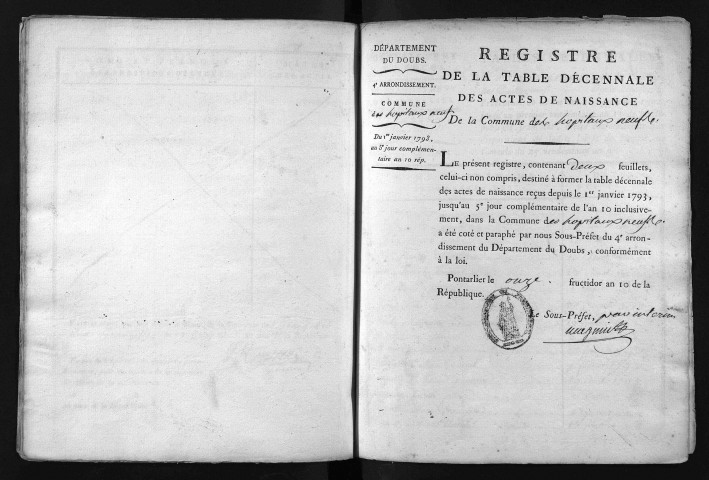 DÉPARTEMENT
DU DOUBS.
4e ARRONDISSEMENT.
COMMUNE
des hopitaux neufs
Du 1er janvier 1793,
au 5e jour complémen-
taire an 10 rép.
REGISTRE
DE LA TABLE DÉCENNALE
DES ACTES DE NAISSANCE
De la Commune des hopitaux neufs.
LE présent registre, contenant deux feuillets,
celui-ci non compris, destiné à former la table décennale
des actes de naissance reçus depuis le 1er janvier 1793,
jusqu'au 5e jour complémentaire de l'an 10 inclusive-
ment, dans la Commune des hopitaux neufs.
a été coté et paraphé par nous Sous-Préfet du 4e arron-
dissement du Département du Doubs, conformément
à la loi.
Pontarlier le onze. fructidor an 10 de la
République.
Le Sous-Préfet, par interim